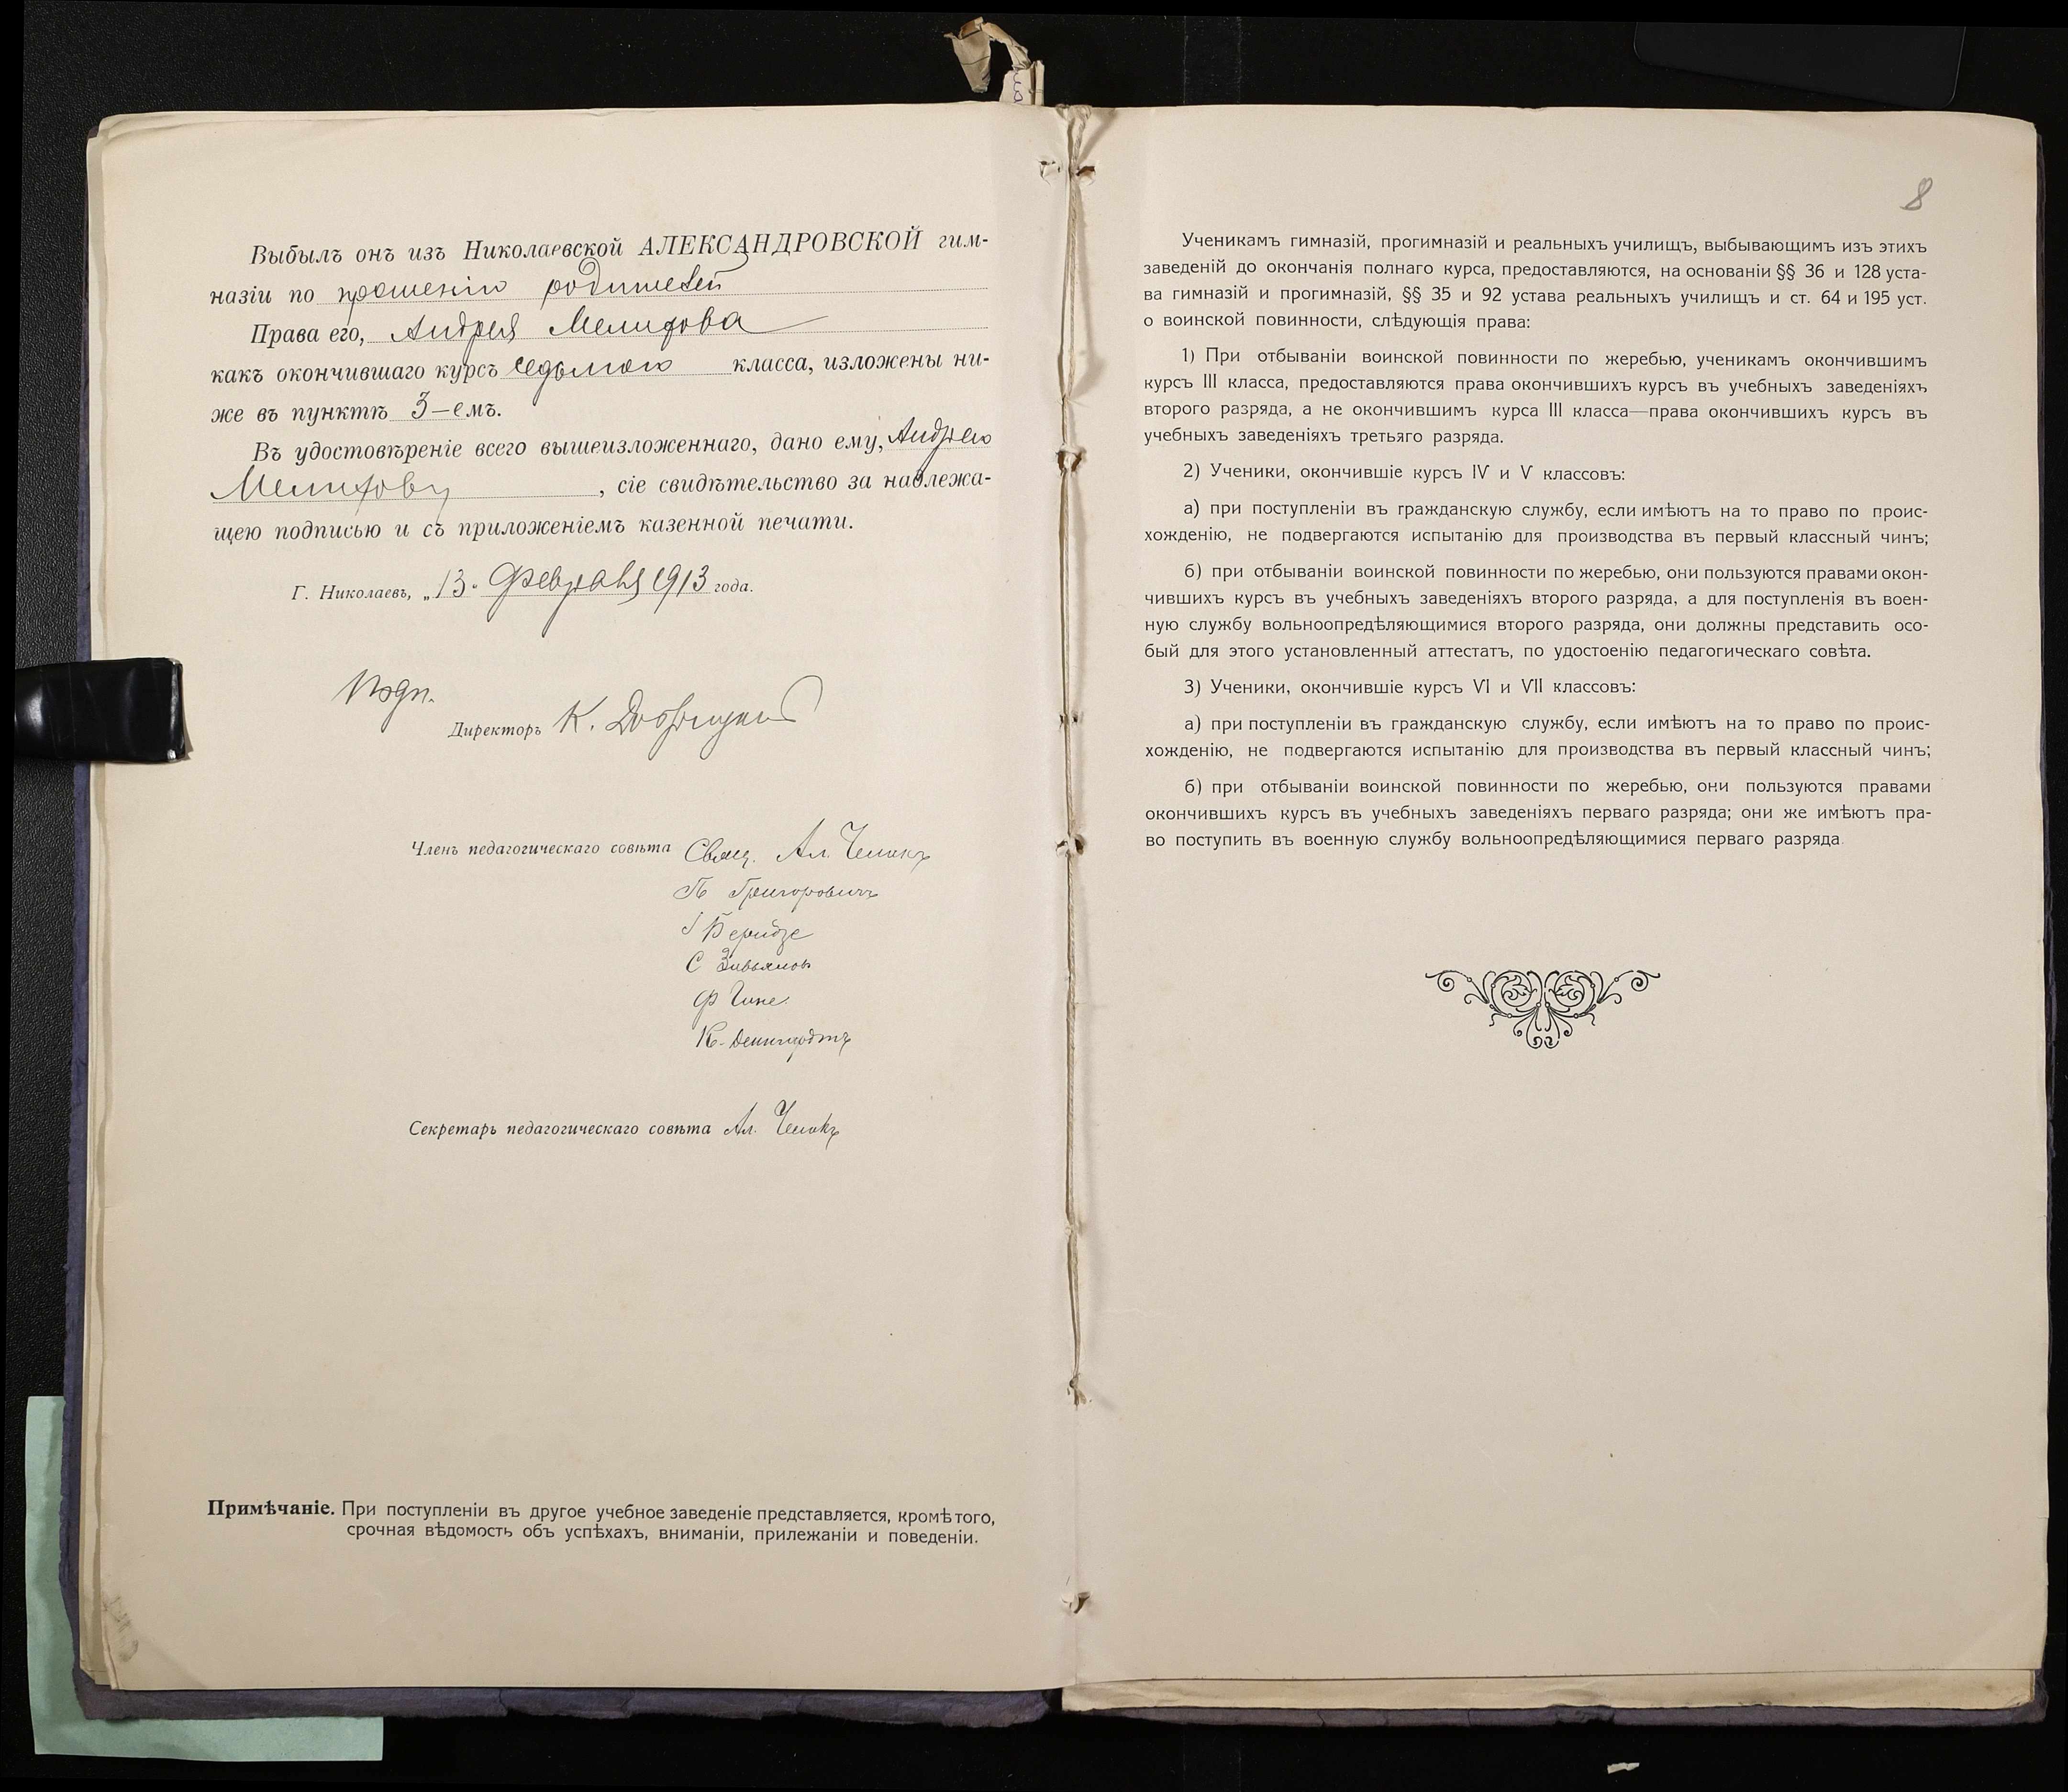 Выбылъ онъ изъ Николаевской АЛЕКСАНДРОВСКОЙ гим-
назіи по прошенію родителей
Права его, Андрея Мелихова
какъ окончившаго курсъ седьмого класса, изложены ни-
же въ пунктѣ 3-емъ.
Въ удостовѣреніе всего вышеизложеннаго, дано ему, Андрею
Мелихову, сіе свидѣтельство за надлежа-
щею подписью и съ приложеніемъ казенной печати.
Г. Николаевъ, „13" Февраля 1913 года.
Подп.
Директоръ К.
Членъ педагогическаго совѣта Свящ. Ал.
П Григоровичъ
І Беридзе
С
Ф
К.
Секретарь педагогическаго совѣта Ал.
Примѣчаніе. При поступленіи въ другое учебное заведеніе представляется, кромѣ того,
срочная вѣдомость объ успѣхахъ, вниманіи, прилежаніи и поведеніи.
8
Ученикамъ гимназій, прогимназій и реальныхъ училищъ, выбывающимъ изъ этихъ
заведеній до окончанія полнаго курса, предоставляются, на основаніи §§ 36 и 128 уста-
ва гимназій и прогимназій, §§ 35 и 92 устава реальныхъ училищъ и ст. 64 и 195 уст.
о воинской повинности, слѣдующія права:
1) При отбываніи воинской повинности по жеребью, ученикамъ окончившимъ
курсъ III класса, предоставляются права окончившихъ курсъ въ учебныхъ заведеніяхъ
второго разряда, а не окончившимъ курса III класса—права окончившихъ курсъ въ
учебныхъ заведеніяхъ третьяго разряда.
2) Ученики, окончившіе курсъ IV и V классовъ:
а) при поступленіи въ гражданскую службу, если имѣютъ на то право по проис-
хожденію, не подвергаются испытанію для производства въ первый классный чинъ;
б) при отбываніи воинской повинности по жеребью, они пользуются правами окон-
чившихъ курсъ въ учебныхъ заведеніяхъ второго разряда, а для поступленія въ воен-
ную службу вольноопредѣляющимися второго разряда, они должны представить осо-
бый для этого установленный аттестатъ, по удостоенію педагогическаго совѣта.
3) Ученики, окончившіе курсъ VI и VII классовъ:
а) при поступленіи въ гражданскую службу, если имѣютъ на то право по проис-
хожденію, не подвергаются испытанію для производства въ первый классный чинъ;
б) при отбываніи воинской повинности по жеребью, они пользуются правами
окончившихъ курсъ въ учебныхъ заведеніяхъ перваго разряда; они же имѣютъ пра-
во поступить въ военную службу вольноопредѣляющимися перваго разряда.